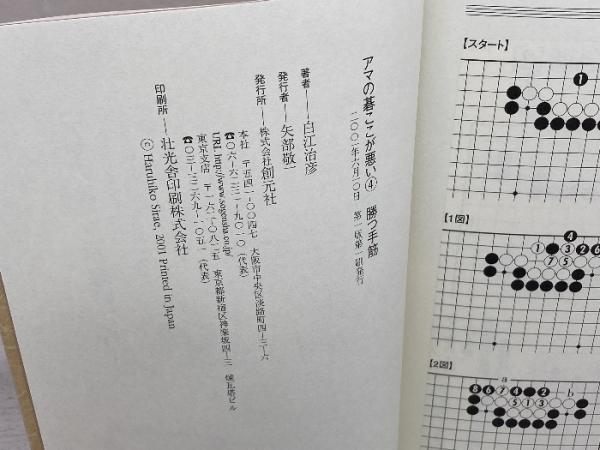 アマの碁ここが悪い④ 勝つ手筋
二〇〇一年六月一〇日 第一版第一刷発行
著者――白江治彦
発行者――矢部敬一
発行所――株式会社創元社
本社 〒五四一-〇〇四七 大阪市中央区淡路町四-三-六
☎〇六-六二三一-九〇一〇(代表)
URL http://www.sogensha.co.jp/
東京支店 〒一六二-〇八二五 東京都新宿区神楽坂四-三 煉瓦塔ビル
☎〇三-三二六九-一〇五一(代表)
印刷所――壮光舎印刷株式会社
© Haruhiko Sirae, 2001 Printed in Japan
【スタート】
❶
【1図】
❹
①③❷❻
⑦⑤
【2図】
a
❽❻⑦❹❷ b
⑤①③